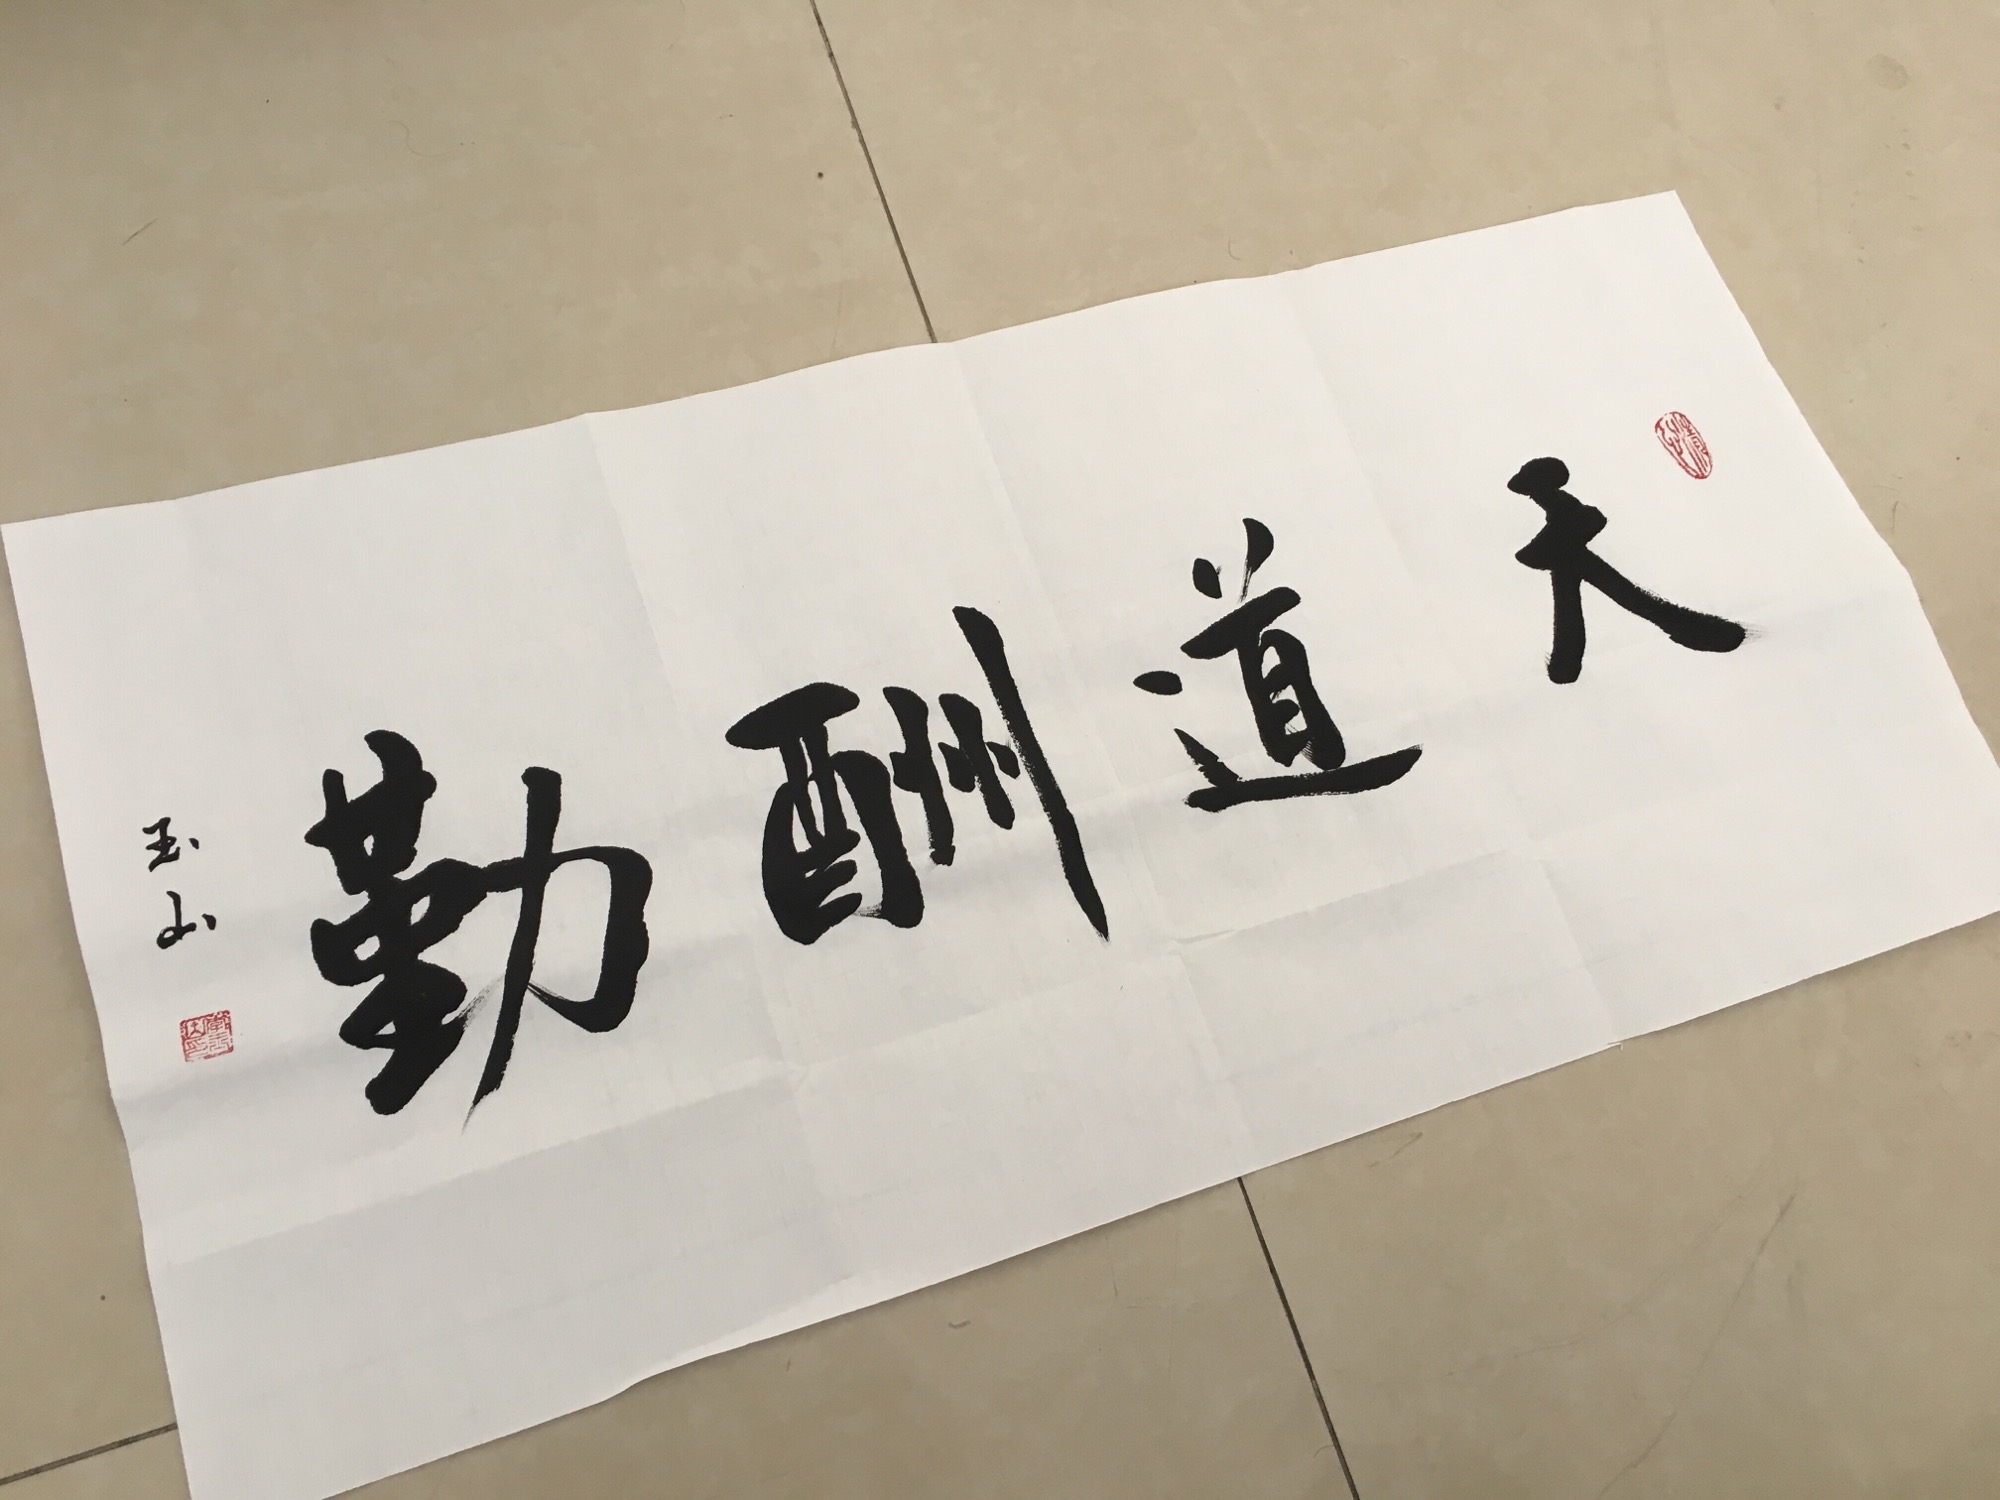 天道酬勤
玉山